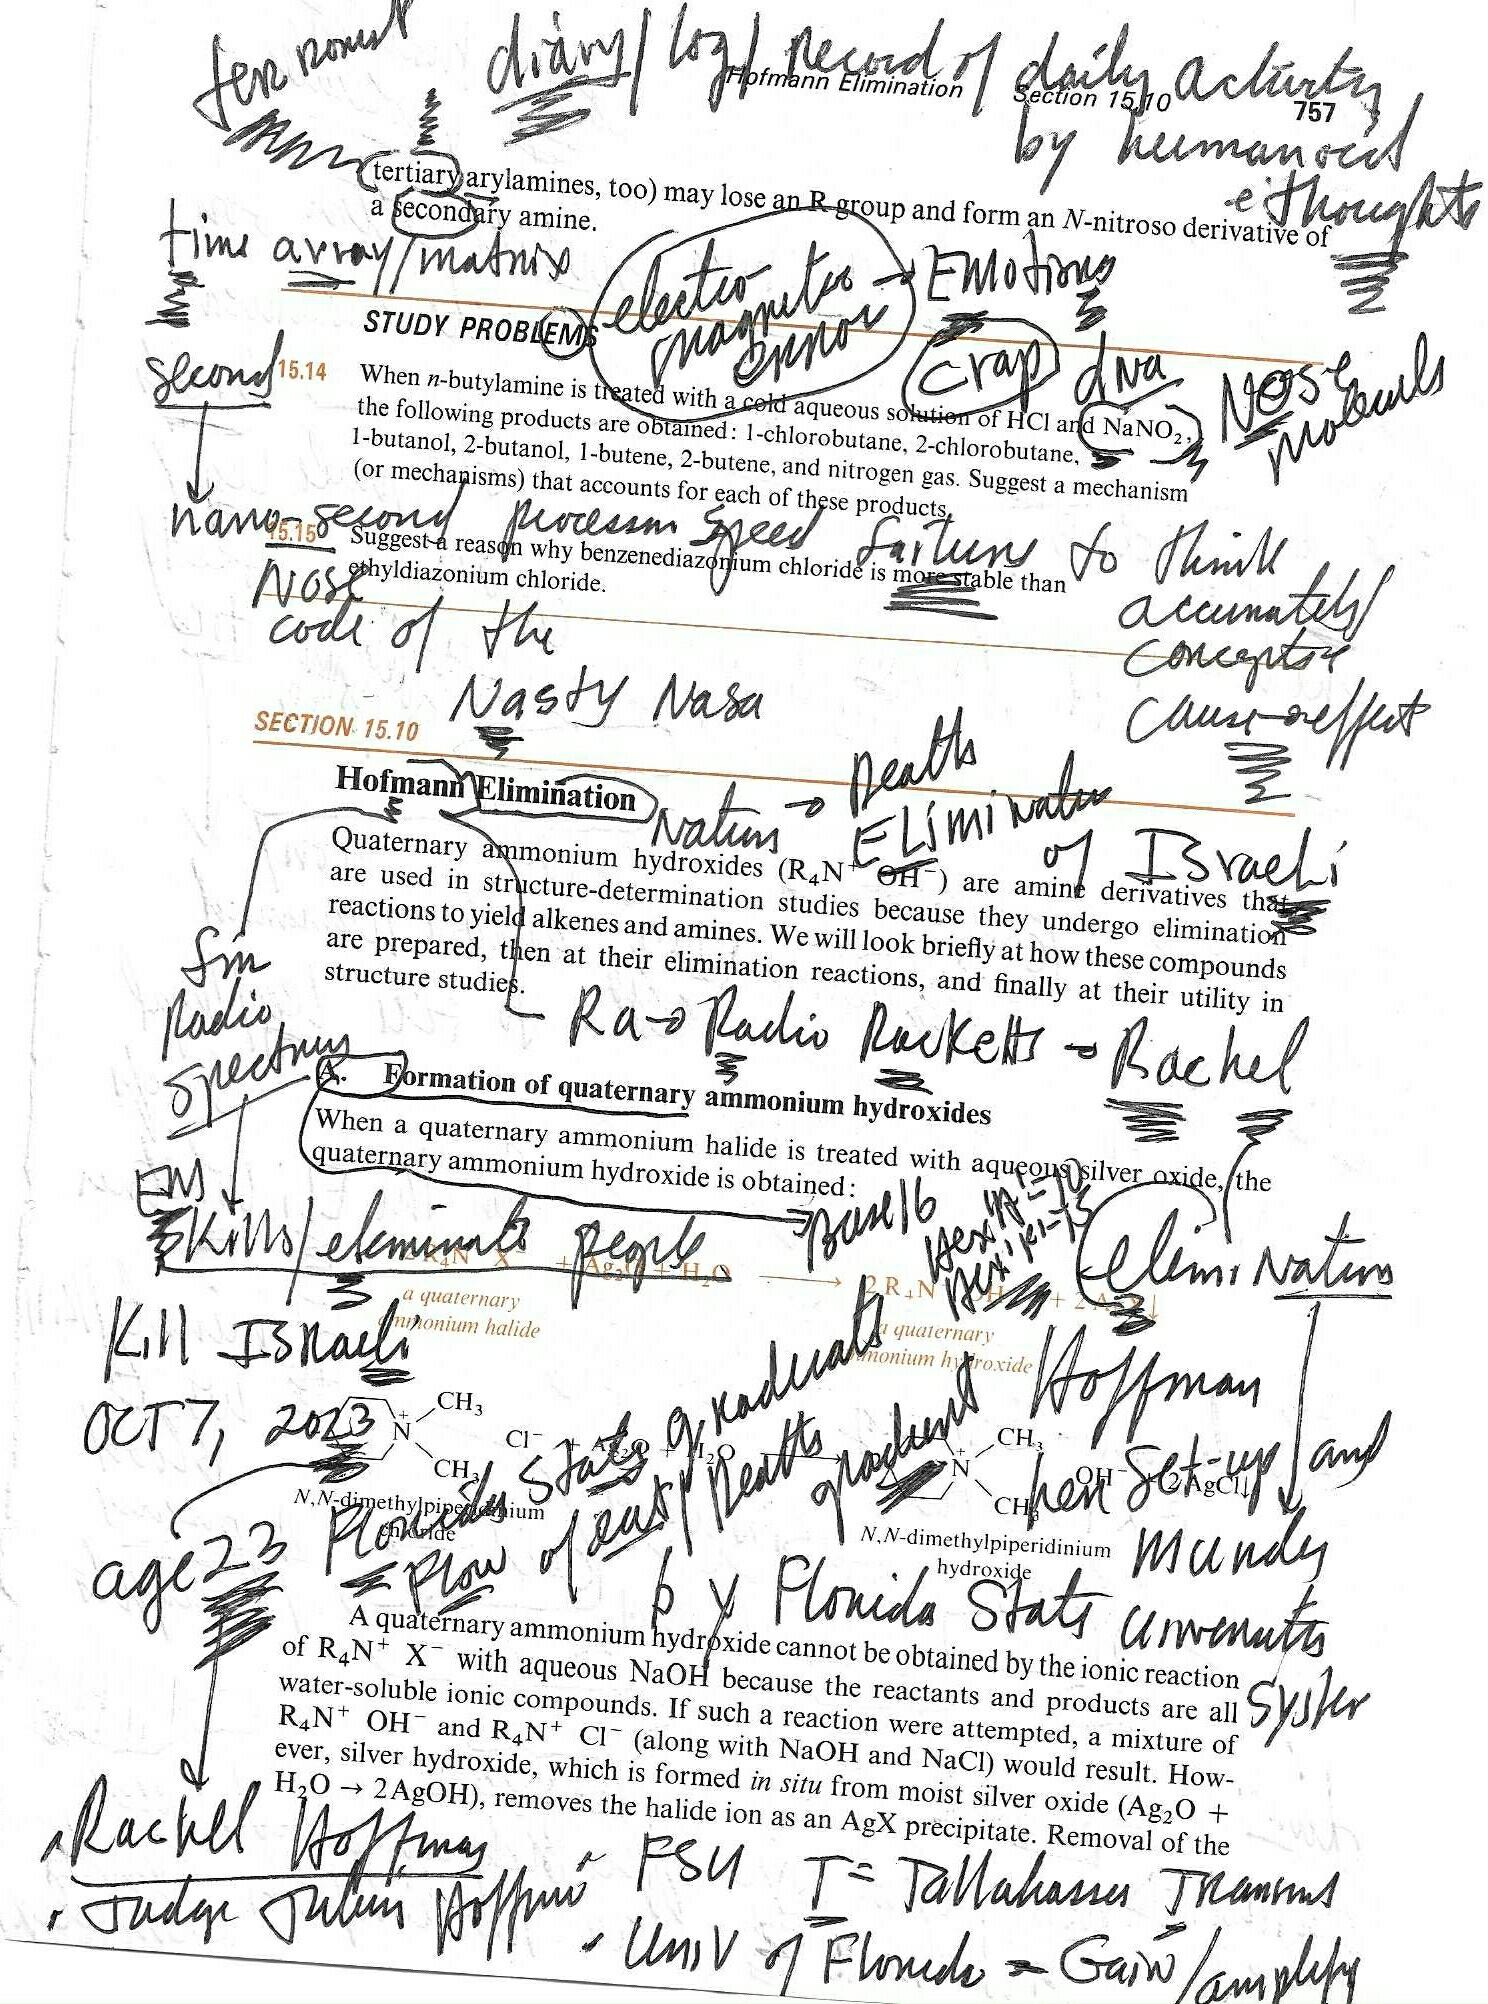 diary / log / Record of daily activity
Hofmann Elimination Section 15.10 757
by humanoid
thoughts
tertiary arylamines, too) may lose an R group and form an N-nitroso derivative of
a secondary amine.
time array/matrix
electro
magnetic
error
→ EMotions
STUDY PROBLEMS
Crap dna Nose
molecules
second
15.14 When n-butylamine is treated with a cold aqueous solution of HCl and NaNO₂,
the following products are obtained: 1-chlorobutane, 2-chlorobutane,
1-butanol, 2-butanol, 1-butene, 2-butene, and nitrogen gas. Suggest a mechanism
(or mechanisms) that accounts for each of these products.
nano-second processor speed failure to think
accurately/
concepts
cause→effect
15.15 Suggest a reason why benzenediazonium chloride is more stable than
ethyldiazonium chloride.
Nose
code of the
Nasty Nasa
SECTION 15.10
Hofmann Elimination
Nature → Death
ELimiNation
of ISraeLi
Quaternary ammonium hydroxides (R₄N⁺ OH⁻) are amine derivatives that
are used in structure-determination studies because they undergo elimination
reactions to yield alkenes and amines. We will look briefly at how these compounds
are prepared, then at their elimination reactions, and finally at their utility in
structure studies.
Radio
Spectrum
Ra→ Radio Racketts → Rachel
A. Formation of quaternary ammonium hydroxides
When a quaternary ammonium halide is treated with aqueous silver oxide, the
quaternary ammonium hydroxide is obtained:
EMS
kills/eliminate people
Base 16
elimi Nature
2 R₄N⁺ X⁻ + Ag₂O + H₂O → 2 R₄N⁺ OH⁻ + 2 AgX↓
a quaternary
ammonium halide
a quaternary
ammonium hydroxide
Kill ISraeli
OCT 7, 2023
Hoffman
her Set-up and
murder
universities
System
CH₃
N⁺
CH₃
Cl⁻ + Ag₂O + H₂O →
CH₃
N⁺
CH₃
OH⁻ + 2 AgCl↓
N,N-dimethylpiperidinium
chloride
N,N-dimethylpiperidinium
hydroxide
age 23
Florida State graduate
Flow of death gradient
by Florida State
A quaternary ammonium hydroxide cannot be obtained by the ionic reaction
of R₄N⁺ X⁻ with aqueous NaOH because the reactants and products are all
water-soluble ionic compounds. If such a reaction were attempted, a mixture of
R₄N⁺ OH⁻ and R₄N⁺ Cl⁻ (along with NaOH and NaCl) would result. How-
ever, silver hydroxide, which is formed in situ from moist silver oxide (Ag₂O +
H₂O → 2 AgOH), removes the halide ion as an AgX precipitate. Removal of the
Rachel Hoffman
Judge Julius Hoffman
FSU T = Tallahassee Transmit
Univ of Florida = Gain/amplify